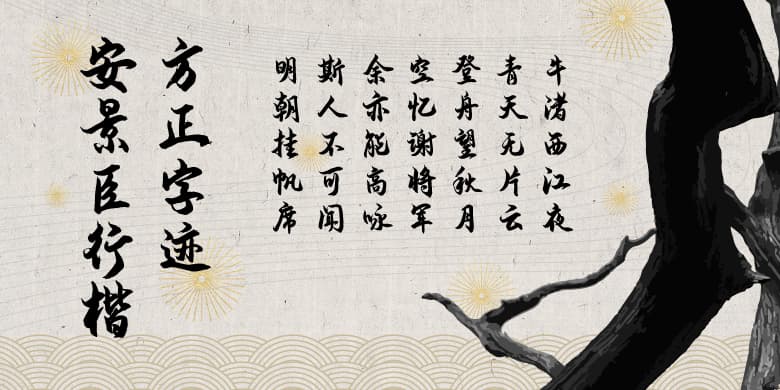 牛渚西江夜
青天无片云
登舟望秋月
空忆谢将军
余亦能高咏
斯人不可闻
明朝挂帆席
方正字迹
安景臣行楷